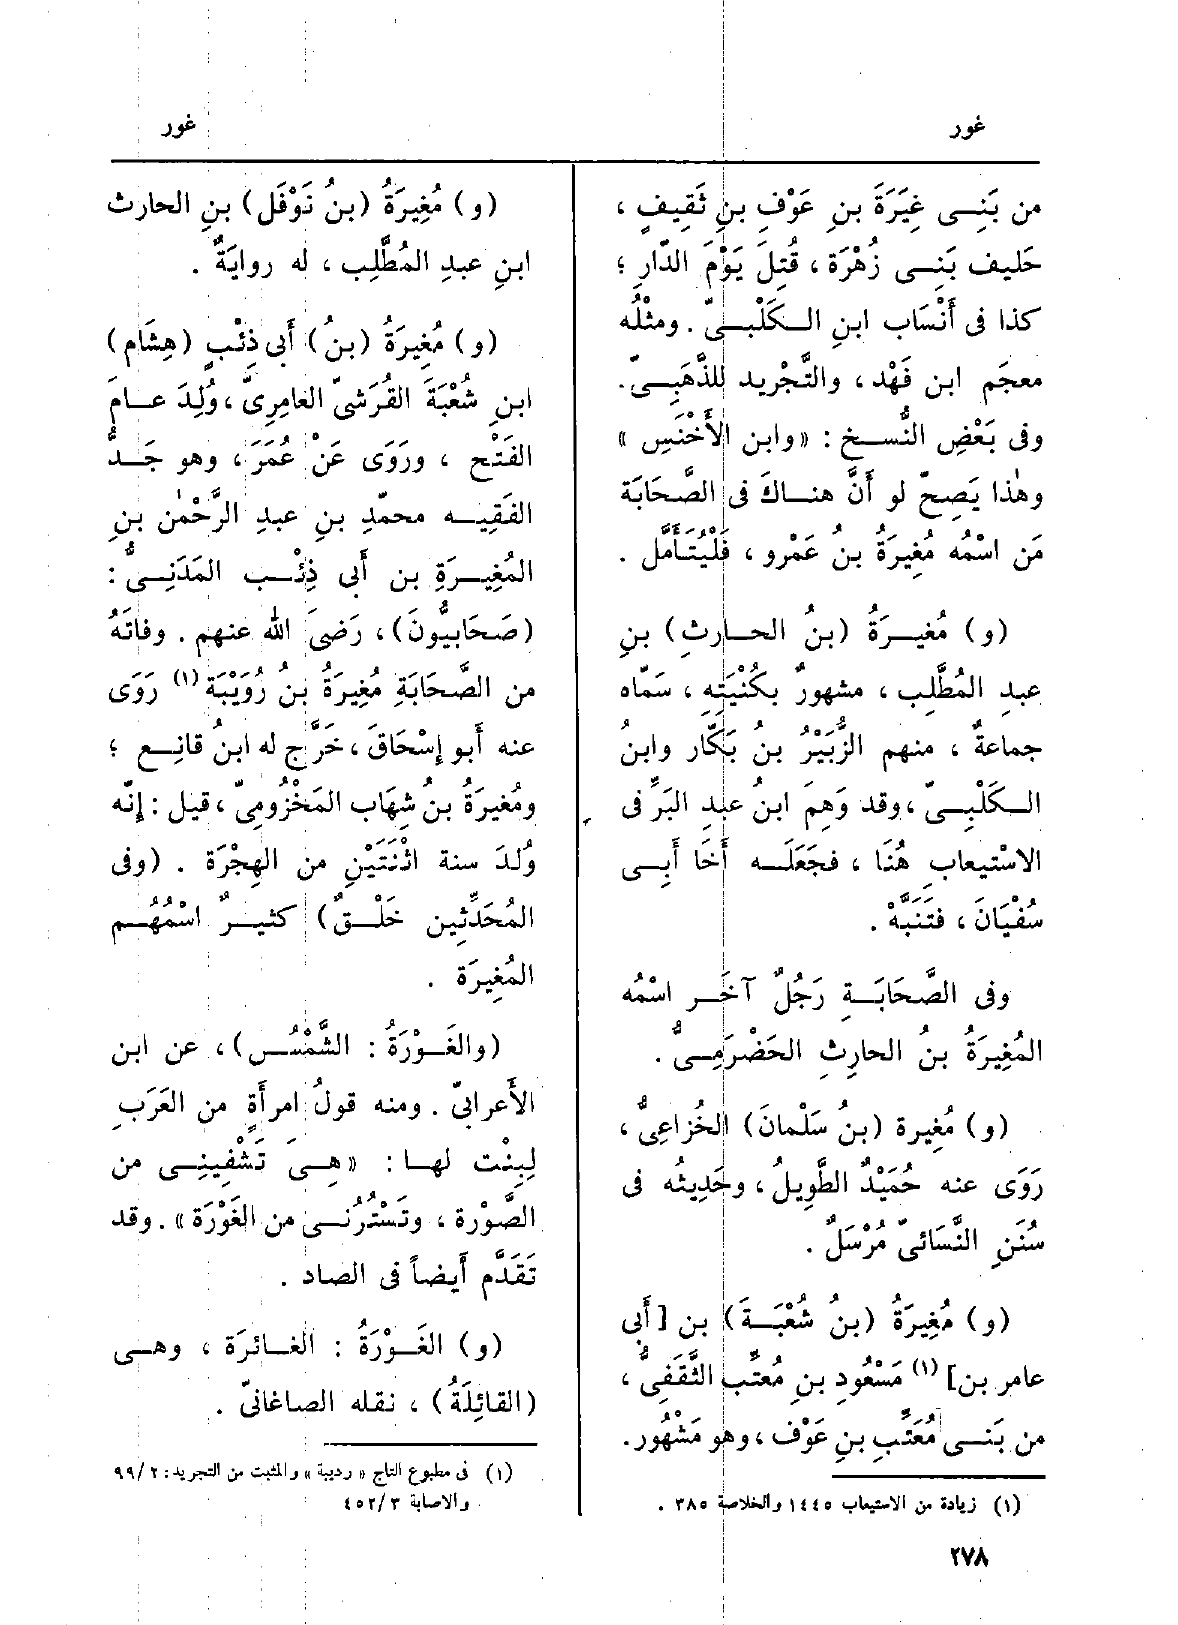 غور
غور
من بَنِـى غِيَرَةَ بنِ عَوْفِ بنِ ثَقِيفٍ ،
حَلِيف بَنِـى زُهْرَة ، قُتِلَ يَوْمَ الدّارِ ؛
كذا فى أَنْسَاب ابنِ الــكَلْبِـىّ . ومثْلُه
معجَم ابن فَهْد ، والتَّجْريد للذَّهَبِـىّ.
وفى بَعْضِ النُّســخ : «وابن الأَخْنَسِ »
وهٰذا يَصِحّ لو أَنَّ هنــاك فى الصَّحَابَة
مَن اسْمُه مُغِيرَةُ بنُ عَمْرو ، فَلْيُتَأَمَّل .
(و) مُغيــرَةُ (بنُ الحــارثِ) بنِ
عبد المُطَّلِب ، مشهورٌ بكُنْيَتِه ، سَمّاه
جماعةٌ ، منهم الزُّبَيْرُ بنُ بَكّار وابنُ
الــكَلْبِـىّ ، وقد وَهِمَ ابنُ عبدِ البَرِّ فى
الاسْتِيعاب هُنَا ، فجَعَلَــه أَخَا أَبِــى
سُفْيَانَ ، فتَنَبَّهْ .
وفى الصَّحَابَــةِ رَجُلٌ آخَــر اسْمُه
المُغِيرَةُ بنُ الحارِثِ الحَضْرَمِــىُّ .
(و) مُغِيرة (بنُ سَلْمانَ) الخُزاعِىُّ ،
رَوَى عنه حُمَيْدٌ الطَّوِيلُ ، وحَدِيثُه فى
سُنَنِ النَّسَائىّ مُرْسَلٌ .
(و) مُغِيرَةُ (بنُ شُعْبَــةَ) بن [أَبِى
عامر بن] (١) مَسْعُودِ بنِ مُعتِّب الثَّقَفِىُّ ،
من بَنــى مُعَتِّب بنِ عَوْف ، وهو مَشْهُور.
(١) زيادة من الاستيعاب ١٤٤٥ والخلاصة ٣٨٥ .
(و) مُغِيرَةُ (بنُ نَوْفَل) بنِ الحارث
ابنِ عبدِ المُطَّلِب ، له روايَةٌ .
(و) مُغِيرَةُ (بنُ) أَبى ذِئْبٍ (هِشَام)
ابنِ شُعْبَةَ القُرَشىّ العامِرِىّ ، وُلِدَ عــامَ
الفَتْح ، ورَوَى عَنْ عُمَرَ ، وهو جَــدُّ
الفَقِيــه محمّدِ بنِ عبدِ الرَّحْمٰن بنِ
المُغِيــرَةِ بن أَبى ذِئْــب المَدَنِــىُّ :
(صَحَابِيُّونَ) ، رَضىَ الله عنهم . وفاتَهُ
من الصَّحَابَةِ مُغِيرَةُ بنُ رُوَيْبَة (١) رَوَى
عنه أَبو إِسْحَاقَ ، خَرَّج له ابنُ قانِــع ؛
ومُغيرَةُ بنُ شِهَاب المَخْزُومِىّ ، قيل : إِنّه
وُلدَ سنة اثْنَتَيْنِ من الهِجْرَة . (وفى
المُحَدِّثِين خَلْــقٌ) كثيــرٌ اسْمُهُــم
المُغِيرَة .
(والغَــوْرَةُ : الشَّمْــس) ، عن ابن
الأَعرابىّ . ومنه قولُ امرأَةٍ من العَرَبِ
لِبِنْت لهــا : «هِــىَ تَشْفِينِــى من
الصَّوْرة ، وتَسْتُرُنــى من الغَوْرَة» . وقد
تَقَدَّم أَيضاً فى الصاد .
(و) الغَــوْرَةُ : الغــائرَة ، وهــى
(القائِلَةُ) ، نقله الصاغانىّ .
(١) فى مطبوع التاج «رديبة» والمثبت من التجريد: ٩٩/٢
والاصابة ٤٥٢/٣
٢٧٨